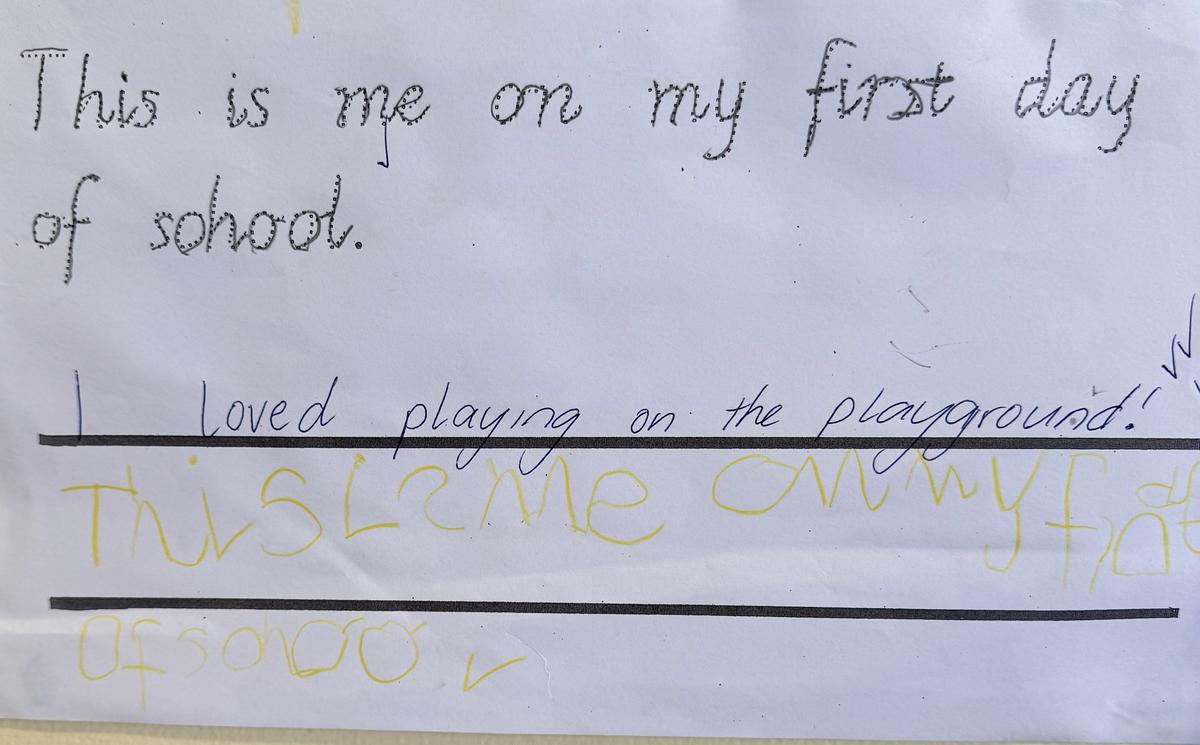 This is me on my first day
of school.
I loved playing on the playground!
This is me on my
of schoo